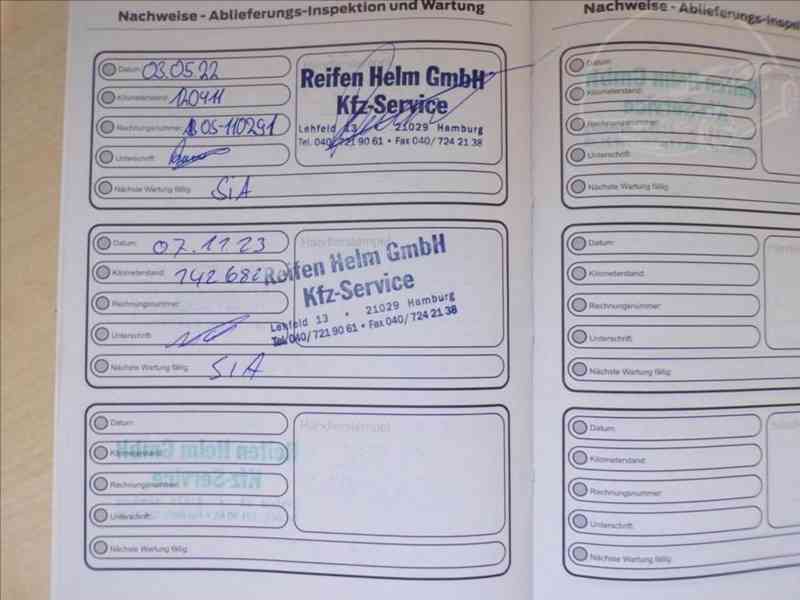 Nachweise - Ablieferungs-Inspektion und Wartung
Datum: 03.05.22
Kilometerstand: 120411
Rechnungsnummer: 05-110291
Unterschrift:
Nächste Wartung fällig: SIA
Reifen Helm GmbH
Kfz-Service
Lehfeld 13 • 21029 Hamburg
Tel. 040/721 90 61 • Fax 040/724 21 38
Datum: 07.11.23
Kilometerstand: 142682
Rechnungsnummer:
Unterschrift:
Nächste Wartung fällig: SIA
Händlerstempel
Reifen Helm GmbH
Kfz-Service
Lehfeld 13 • 21029 Hamburg
Tel. 040/721 90 61 • Fax 040/724 21 38
Datum:
Kilometerstand:
Rechnungsnummer:
Unterschrift:
Nächste Wartung fällig:
Händlerstempel
Nachweise - Ablieferungs-Inspe
Datum:
Kilometerstand:
Rechnungsnummer:
Unterschrift:
Nächste Wartung fällig:
Datum:
Kilometerstand:
Rechnungsnummer:
Unterschrift:
Nächste Wartung fällig:
Datum:
Kilometerstand:
Rechnungsnummer:
Unterschrift:
Nächste Wartung fällig: